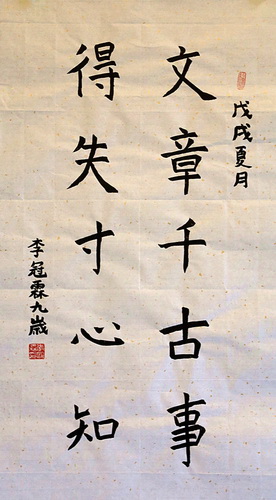 戊戌夏月
文章千古事
得失寸心知
李冠霖九歲